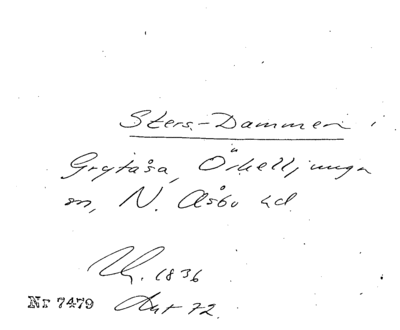 Sters-Dammen i
Grytåsa, Örkelljunga
sn, N. Åsbo hd.
1836
Nr 7479 72.